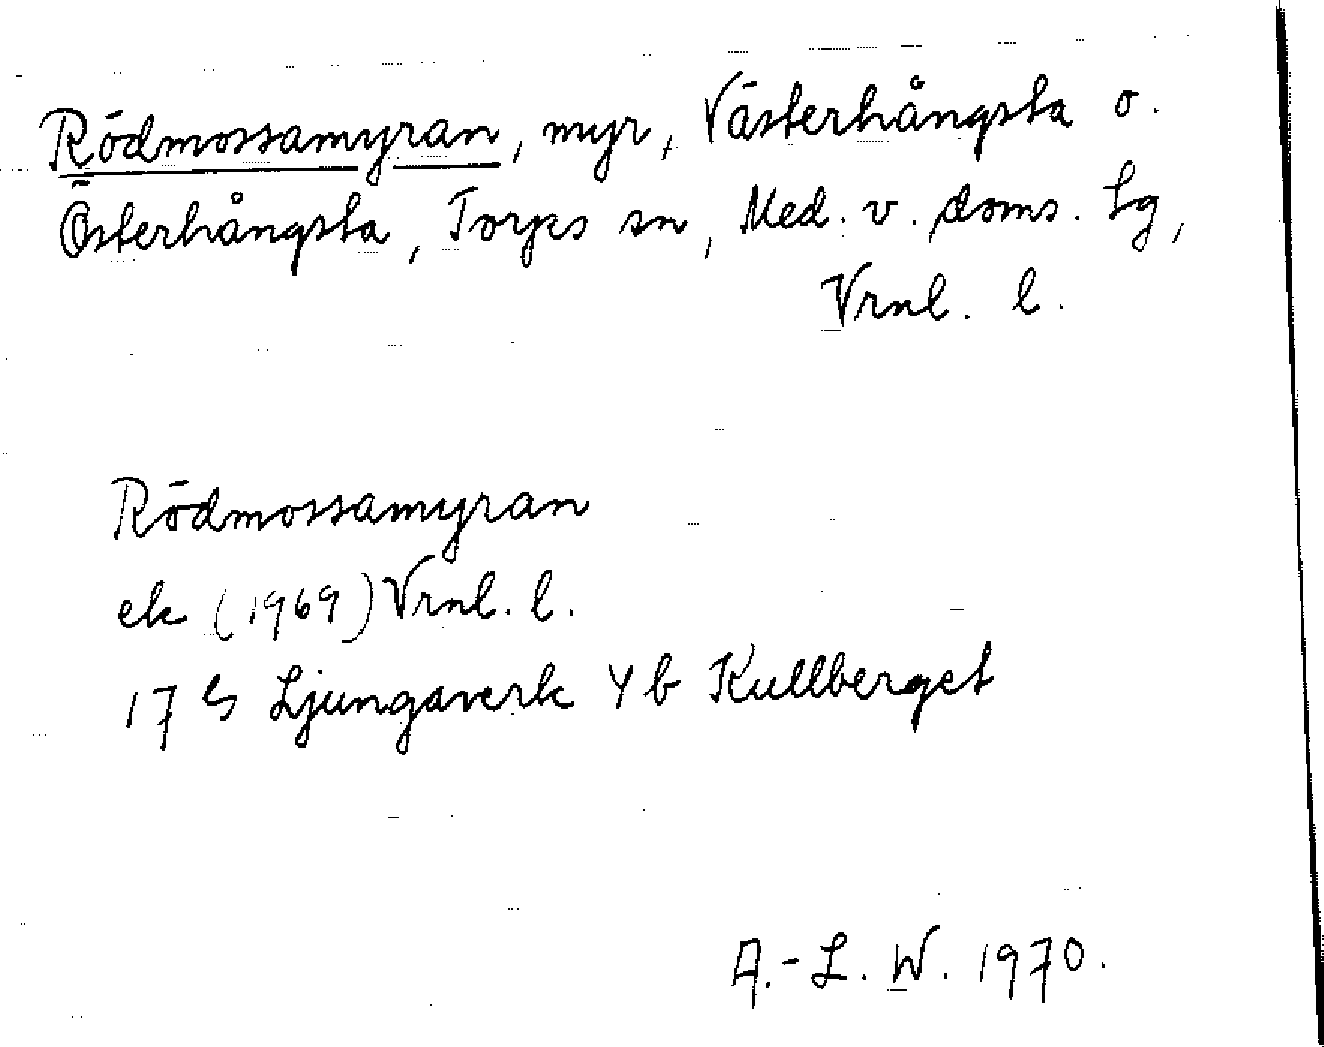 Rödmossamyran, myr, Västerhångsta o.
Österhångsta, Torps sn, Med. v. doms. lg,
Vrnl. l.
Rödmossamyran
ek (1969) Vrnl. l.
17 G Ljungaverk 4 b Kullberget
A.-L. W. 1970.